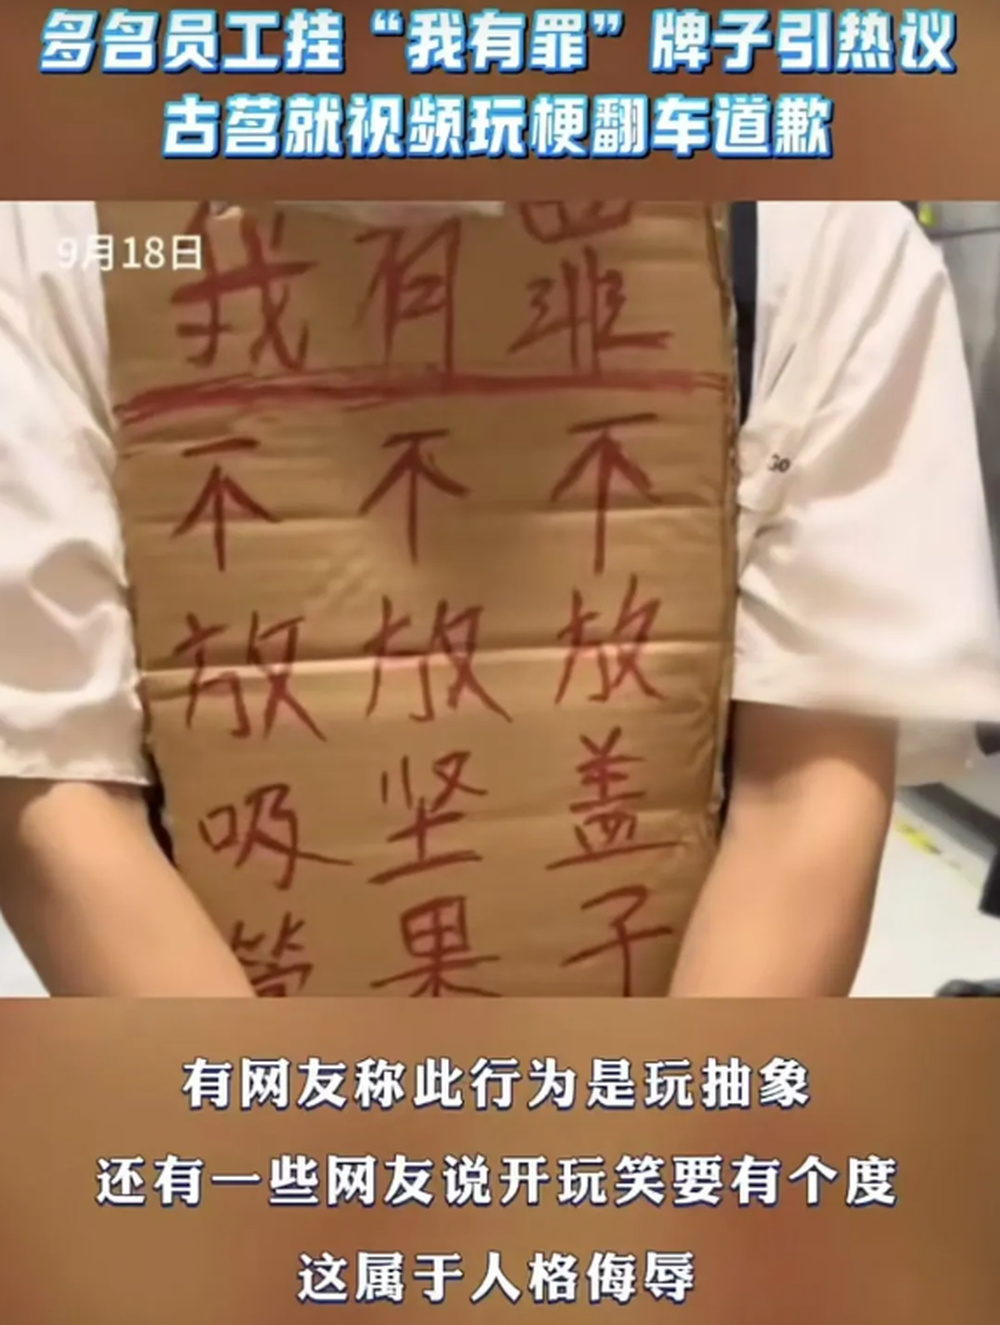 多名员工挂“我有罪”牌子引热议
古茗就视频玩梗翻车道歉
9月18日
我有罪
不放吸管
不放坚果
不放盖子
Go
有网友称此行为是玩抽象
还有一些网友说开玩笑要有个度
这属于人格侮辱